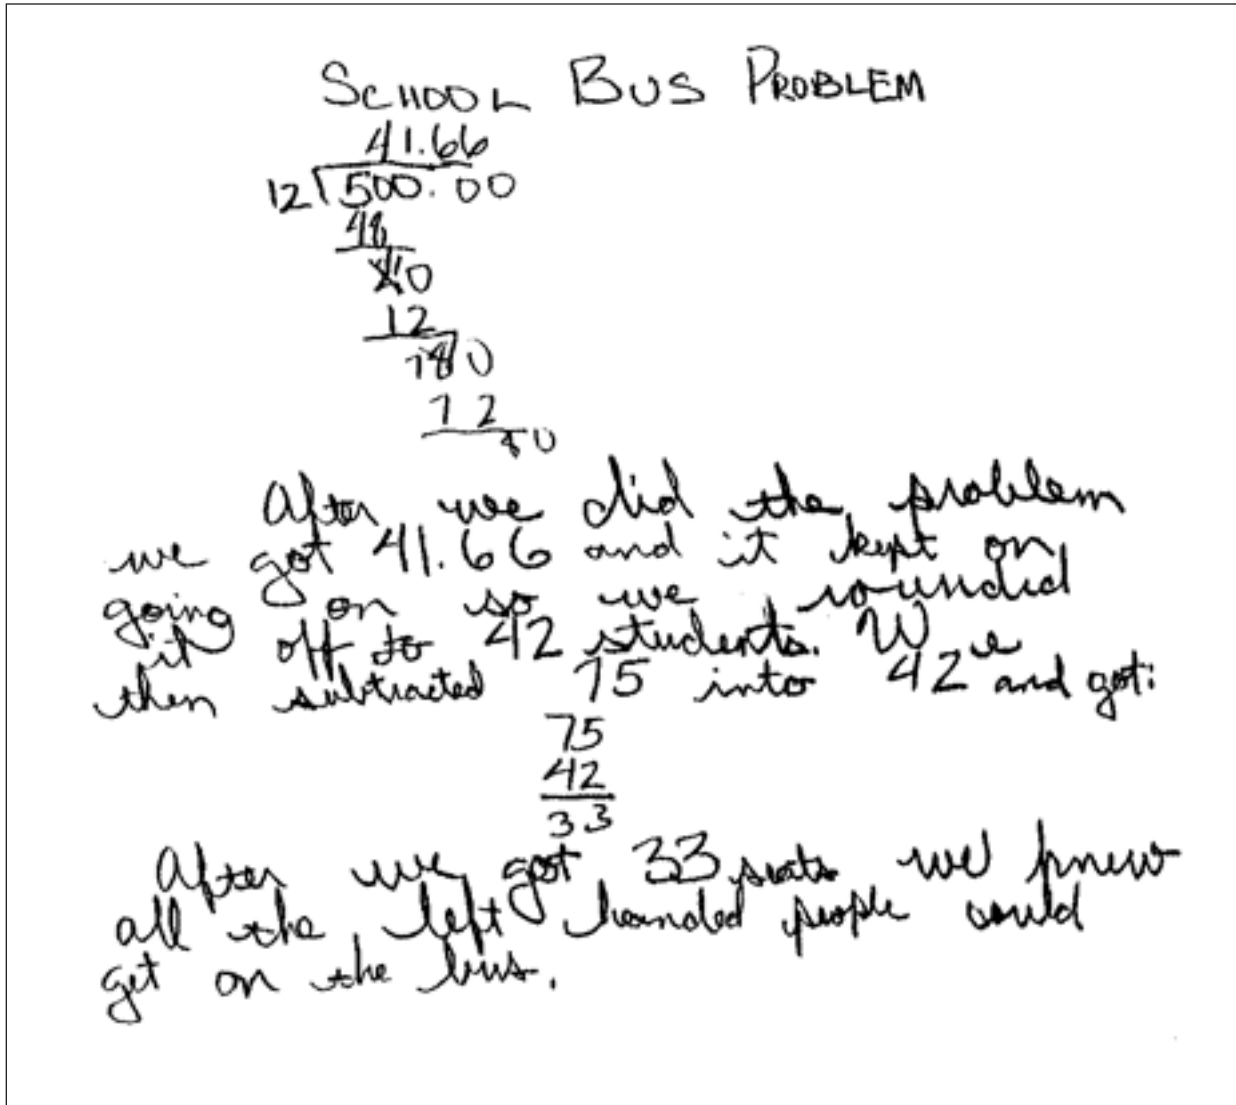 SCHOOL BUS PROBLEM
41.66
12 500.00
48
20
12
80
72
80
After we did the problem
we got 41.66 and it kept on
going on so we rounded
it off to 42 students. We
then subtracted 75 into 42 and got:
75
42
33
After we got 33 seats we knew
all the left handed people could
get on the bus.